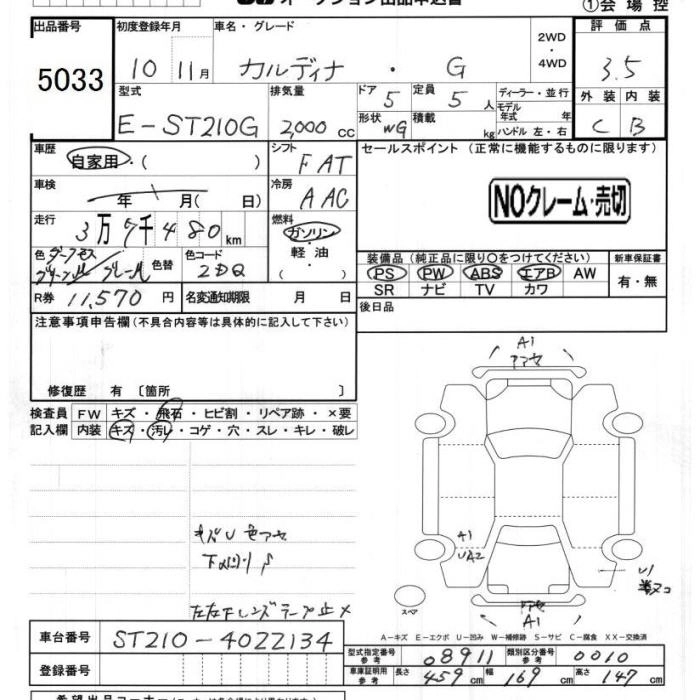 ①会場控
出品番号
5033
初度登録年月
10 11月
車名・グレード
カルディナ ・ G
2WD
・
4WD
評価点
3.5
型式
E-ST210G
排気量
2,000 cc
ドア
5
定員
5 人
形状
WG
積載
kg
ディーラー・並行
モデル年式 年
ハンドル 左・右
外装 内装
C B
車歴
自家用・( )
シフト
FAT
セールスポイント (正常に機能するものに限ります)
車検
年 月( 日)
冷房
AAC
NOクレーム・売切
走行
3万7千480km
燃料
ガソリン
・
軽油
( )
色 色替
色コード
2DQ
装備品 (純正品に限り○をつけてください)
PS PW ABS エアB AW
SR ナビ TV カワ
新車保証書
有・無
R券 11,570 円
名変通知期限 月 日
後日品
注意事項申告欄(不具合内容等は具体的に記入して下さい)
修復歴 有 〔箇所 〕
検査員 FW キズ・飛石・ヒビ割・リペア跡・×要
記入欄 内装 キズ・汚レ・コゲ・穴・スレ・キレ・破レ
A1
キズU 色アセ
A1
UA2
U1
スペア
A1
車台番号
ST210-4022134
A-キズ E-エクボ U-凹み W-補修跡 S-サビ C-腐食 XX-交換済
登録番号
型式指定番号 参考 08911 類別区分番号 参考 0010
車庫証明用 参考 長さ 459cm 幅 169cm 高さ 147cm